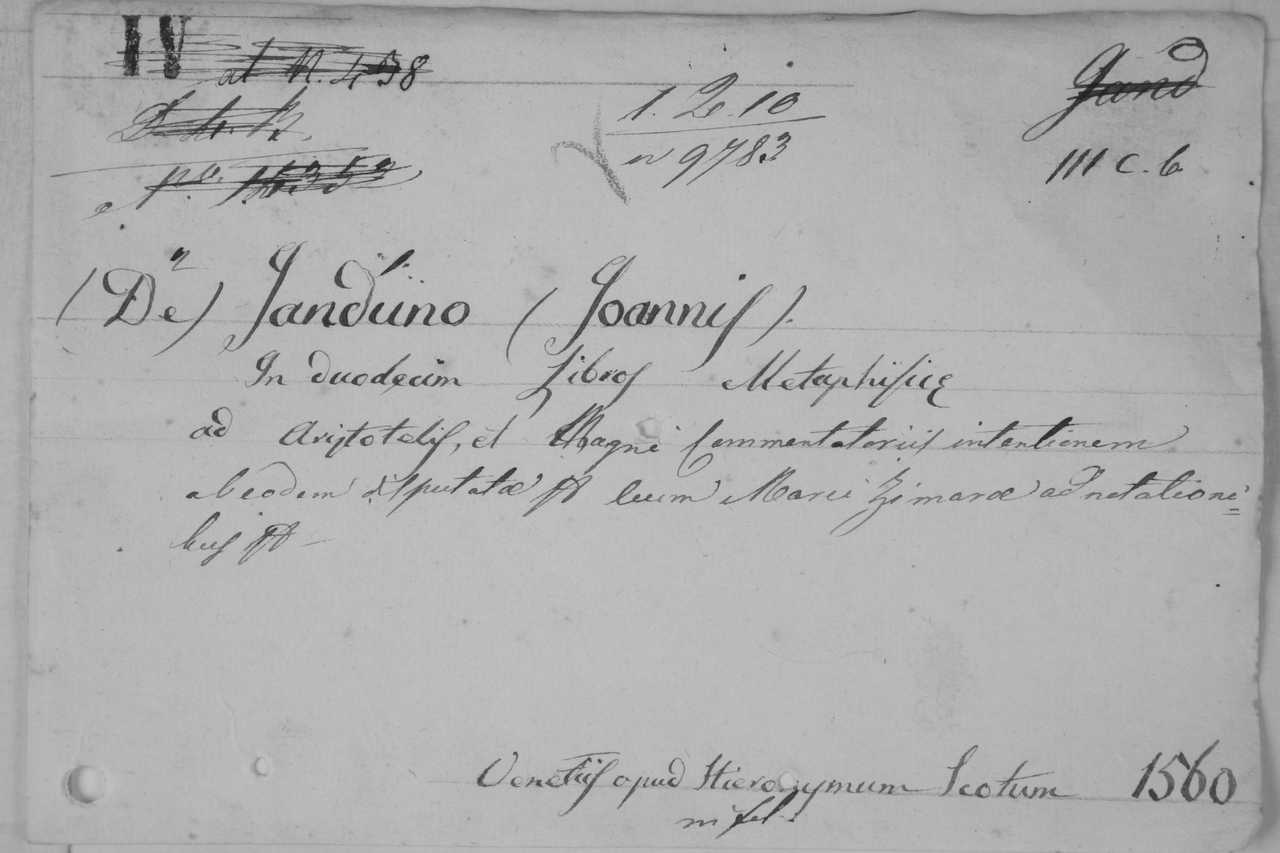 IV
at R. 438
1. 2e. 10
Jand
n 9783
III C. 6
(De) Janduno (Joannis).
In duodecim Libros Metaphisicę
ad Aristotelis, et Magni Commentatoriis intentionem
ab eodem disputatæ cum Marci Zimaræ adnotationi=
bus
Venetiis apud Hieronymum Scotum 1560
in fol.